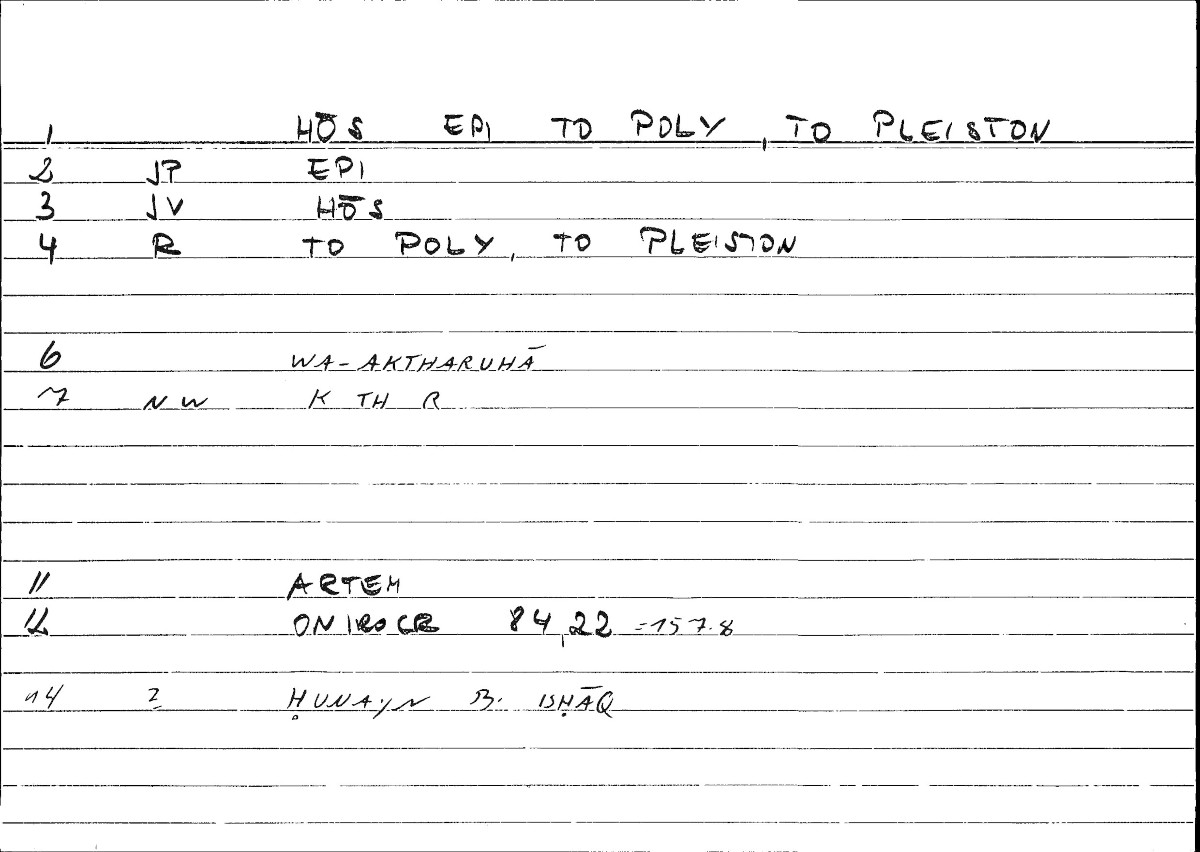 1 HŌS EPI TO POLY, TO PLEISTON
2 JP EPI
3 JV HŌS
4 R TO POLY, TO PLEISTON
6 WA-AKTHARUHĀ
7 NW K TH R
11 ARTEM
12 ONIROCR 84,22 =157.8
14 2 ḤUNAYN B. ISḤĀQ